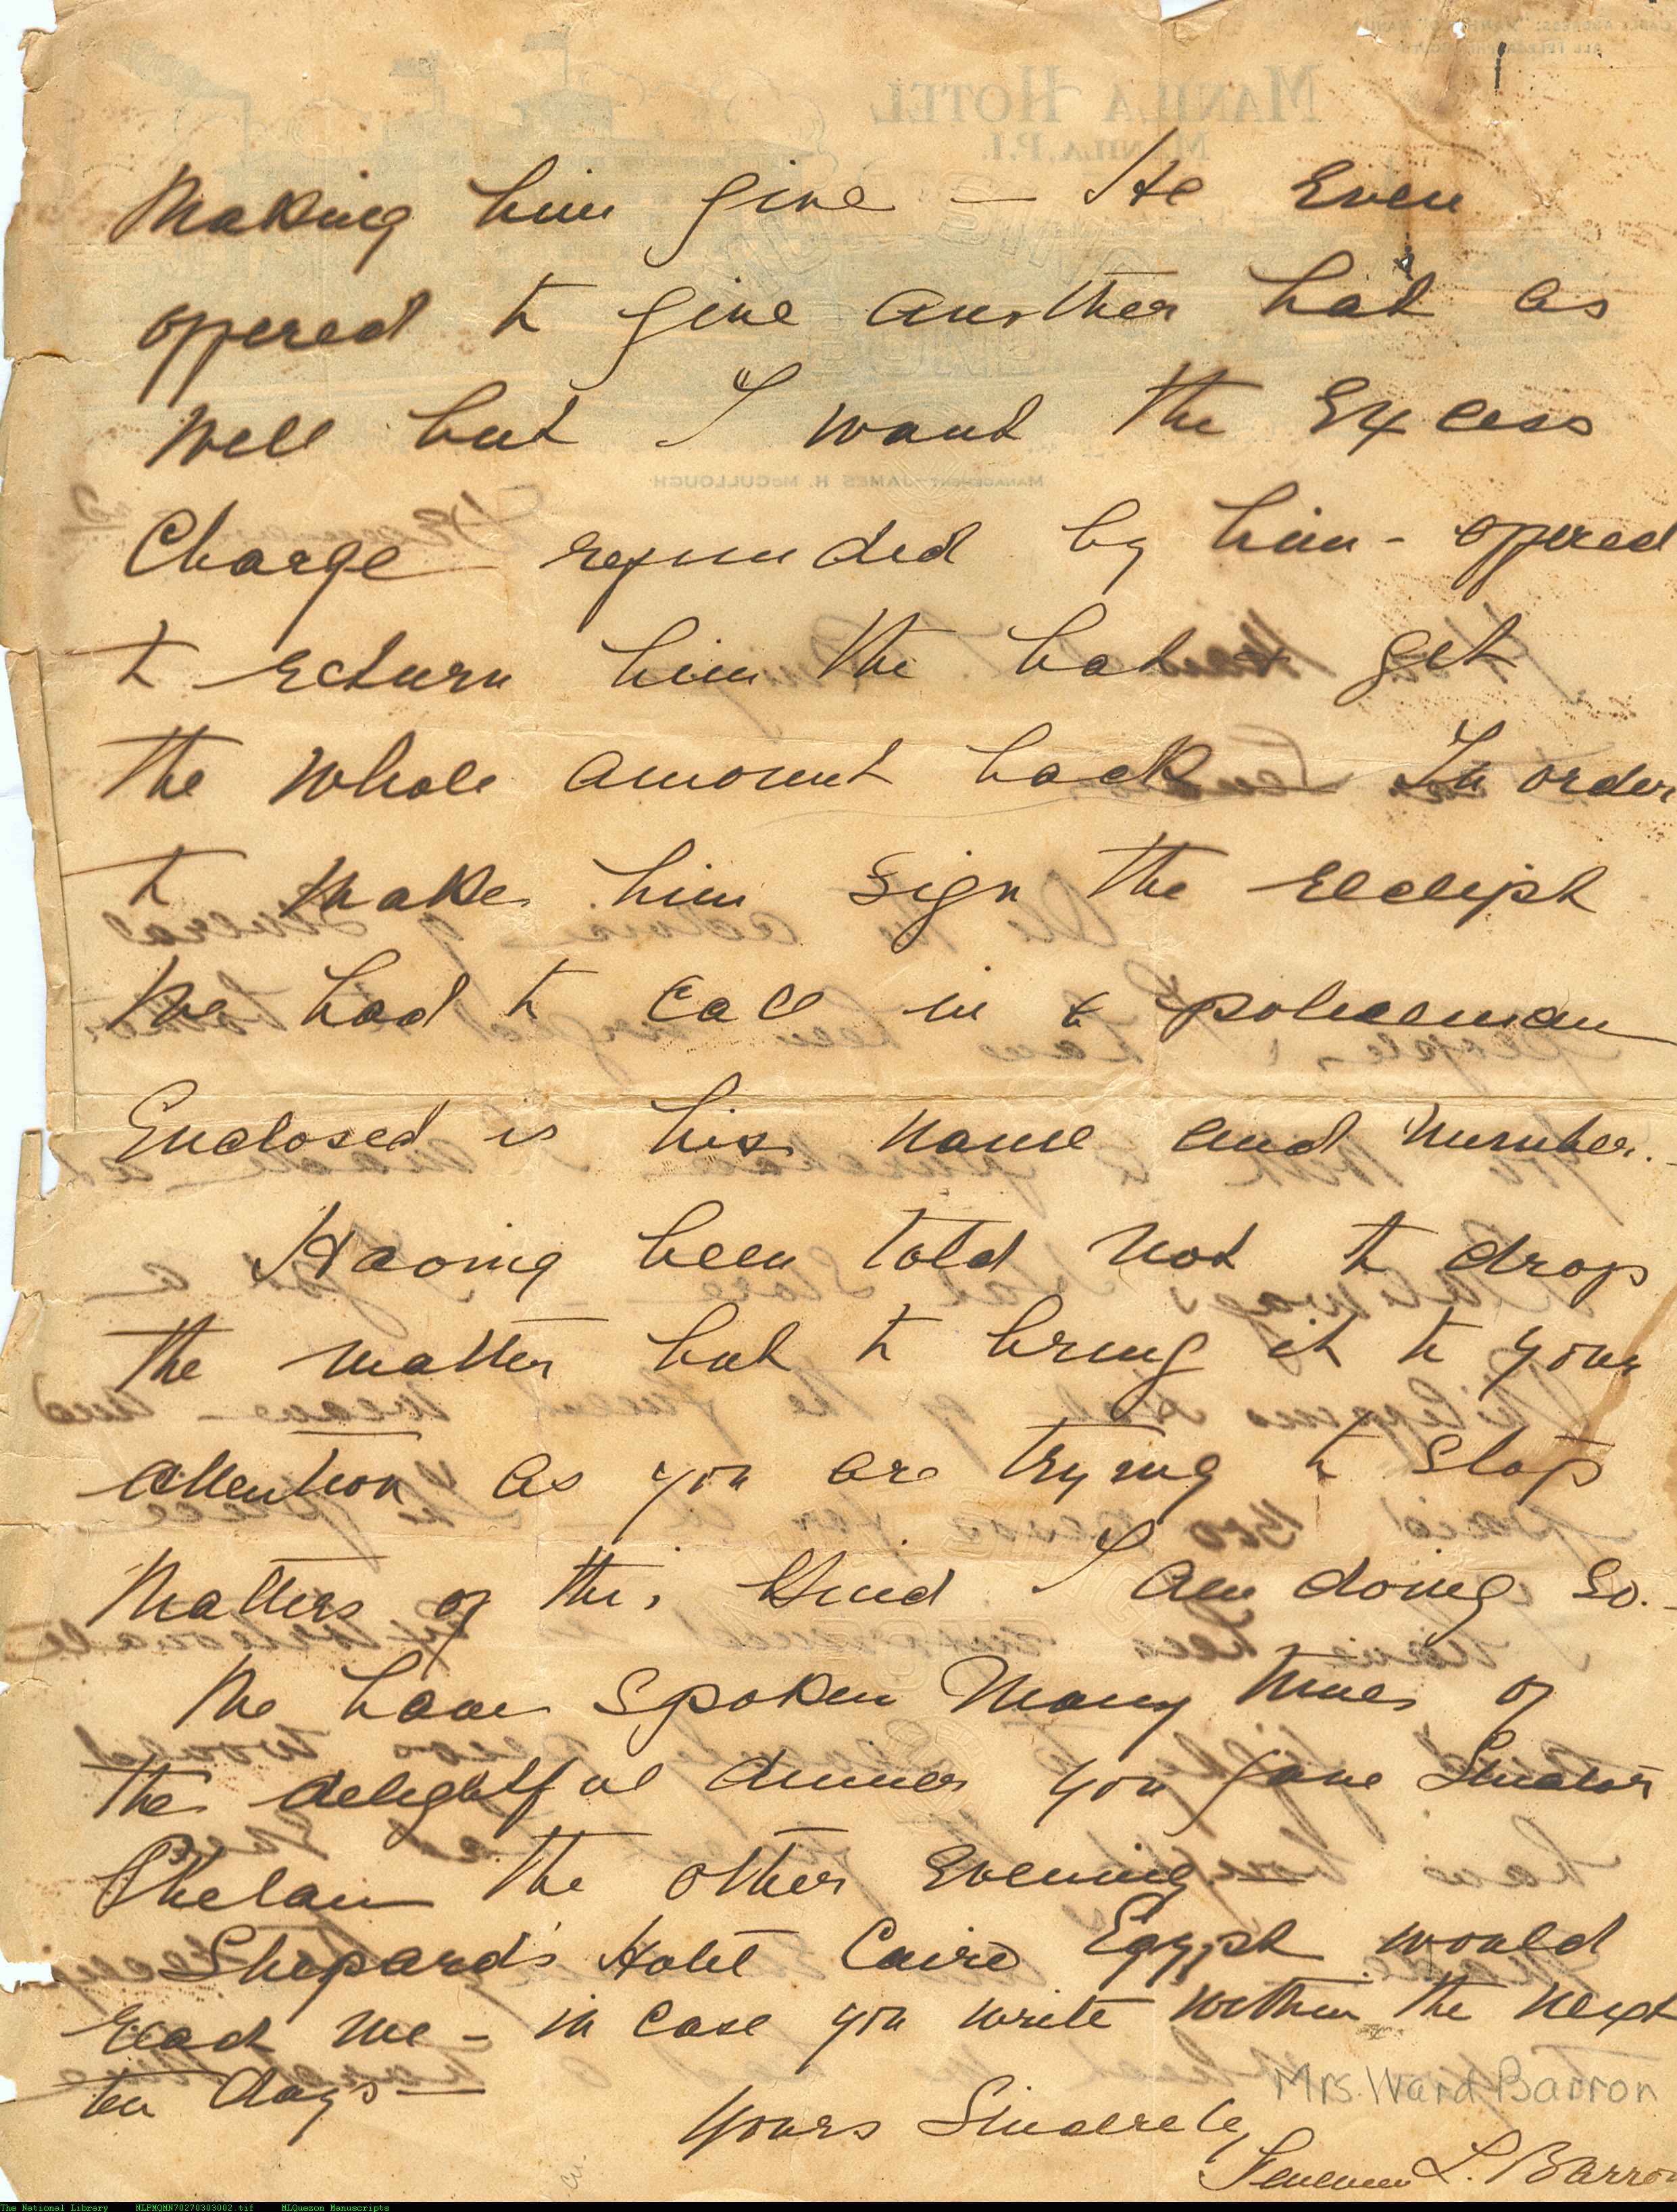 Making him give — He even
offered to give another hat as
well but I want the excess
Charge refunded by him - offered
to return him the hat & get
the whole amount back — In order
to make him sign the reciept
We had to call in a policeman
Enclosed is his name and number. -
Having been told not to drop
the matter but to bring it to your
attention as you are trying to stop
matters of this kind I am doing so. -
We have spoken many times of
the delightful dinner you gave Senator
Phelan the other evening —
Shepard's Hotel Cairo Egypt would
reach me - in case you write within the next
ten days —
Yours Sincerely
L. Barron
Mrs. Ward Barron
MANILA HOTEL
MANILA, P.I.
MANAGEMENT-JAMES H. McCULLOUGH
The National Library NLPMQMN70270303002.tif MLQuezon Manuscripts